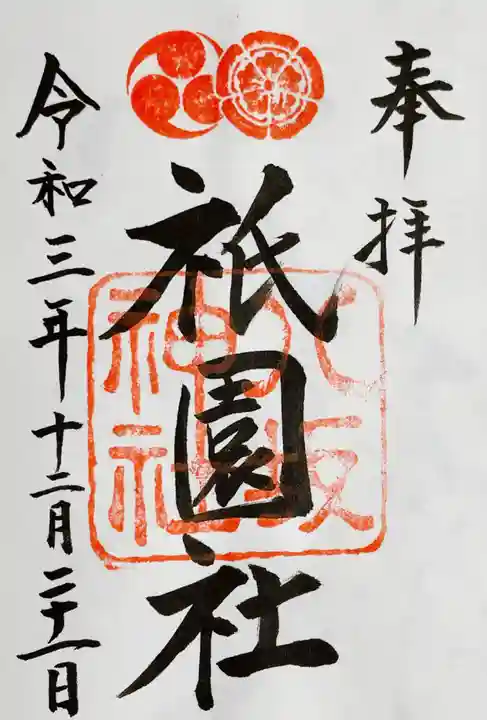 奉拝
八坂
神社
祇園社
令和三年十二月二十一日